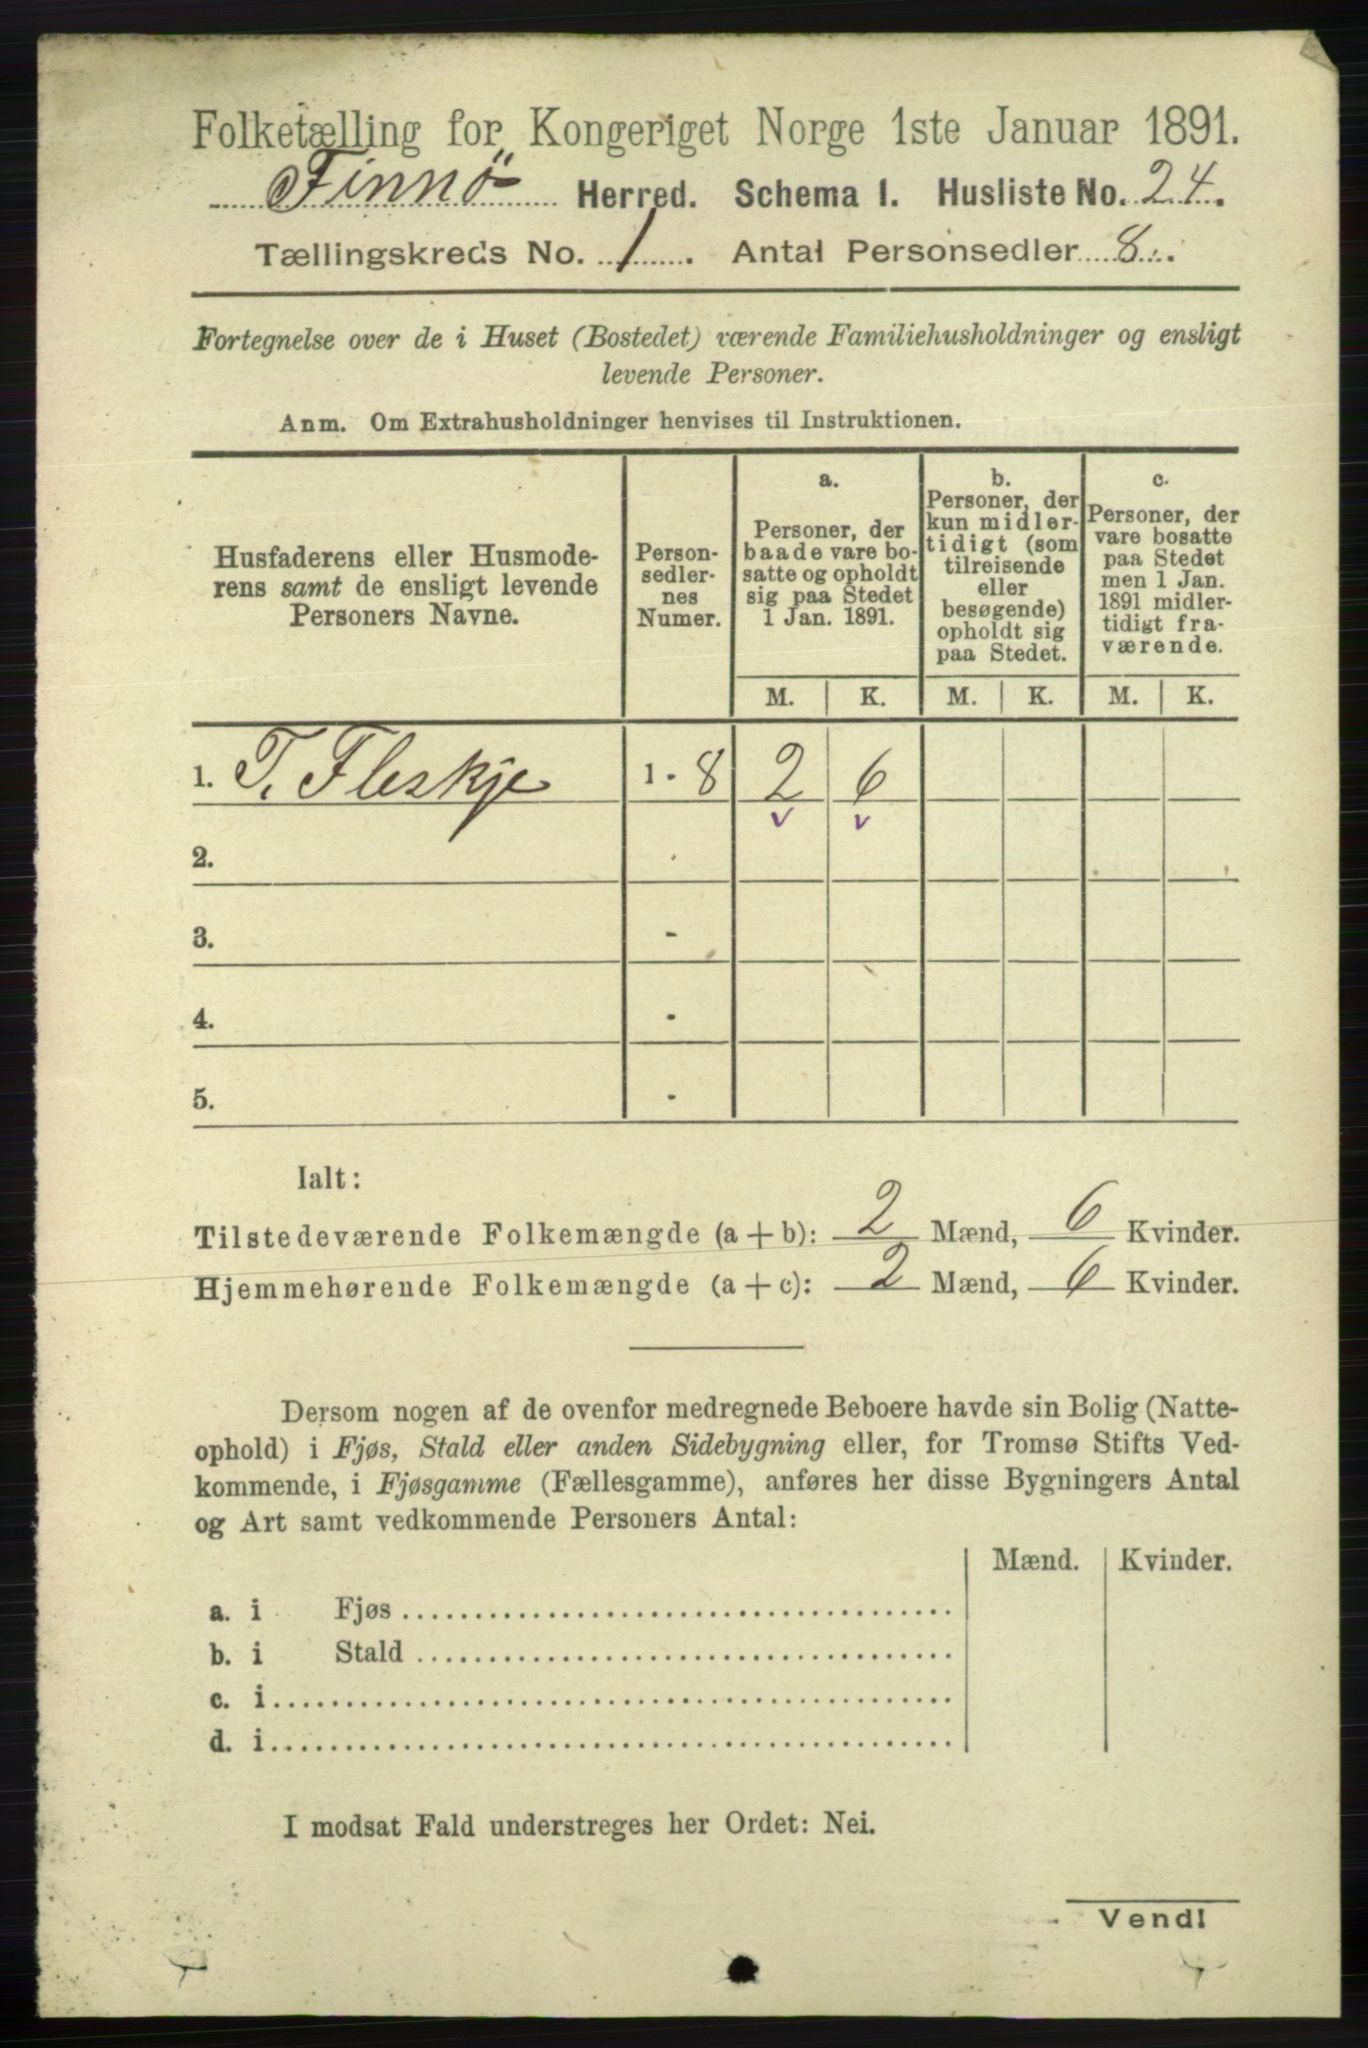 Folketælling for Kongeriget Norge 1ste Januar 1891.
Finnö Herred. Schema I. Husliste No. 24.
Tællingskreds No. 1. Antal Personsedler 8.
Fortegnelse over de i Huset (Bostedet) værende Familiehusholdninger og ensligt
levende Personer.
Anm. Om Extrahusholdninger henvises til Instruktionen.
Husfaderens eller Husmode-
rens samt de ensligt levende
Personers Navne.
Person-
sedler-
nes
Numer.
a.
Personer, der
baade vare bo-
satte og opholdt
sig paa Stedet
1 Jan. 1891.
b.
Personer, der
kun midler-
tidigt (som
tilreisende
eller
besøgende)
opholdt sig
paa Stedet.
c.
Personer, der
vare bosatte
paa Stedet
men 1 Jan.
1891 midler-
tidigt fra-
værende.
M. K. M. K. M. K.
1. T. Fleskje 1 - 8 2 6
2.
3. -
4. -
5. -
Ialt:
Tilstedeværende Folkemængde (a + b): 2 Mænd, 6 Kvinder.
Hjemmehørende Folkemængde (a + c): 2 Mænd, 6 Kvinder.
Dersom nogen af de ovenfor medregnede Beboere havde sin Bolig (Natte-
ophold) i Fjøs, Stald eller anden Sidebygning eller, for Tromsø Stifts Ved-
kommende, i Fjøsgamme (Fællesgamme), anføres her disse Bygningers Antal
og Art samt vedkommende Personers Antal:
Mænd. Kvinder.
a. i Fjøs
b. i Stald
c. i
d. i
I modsat Fald understreges her Ordet: Nei.
Vend!